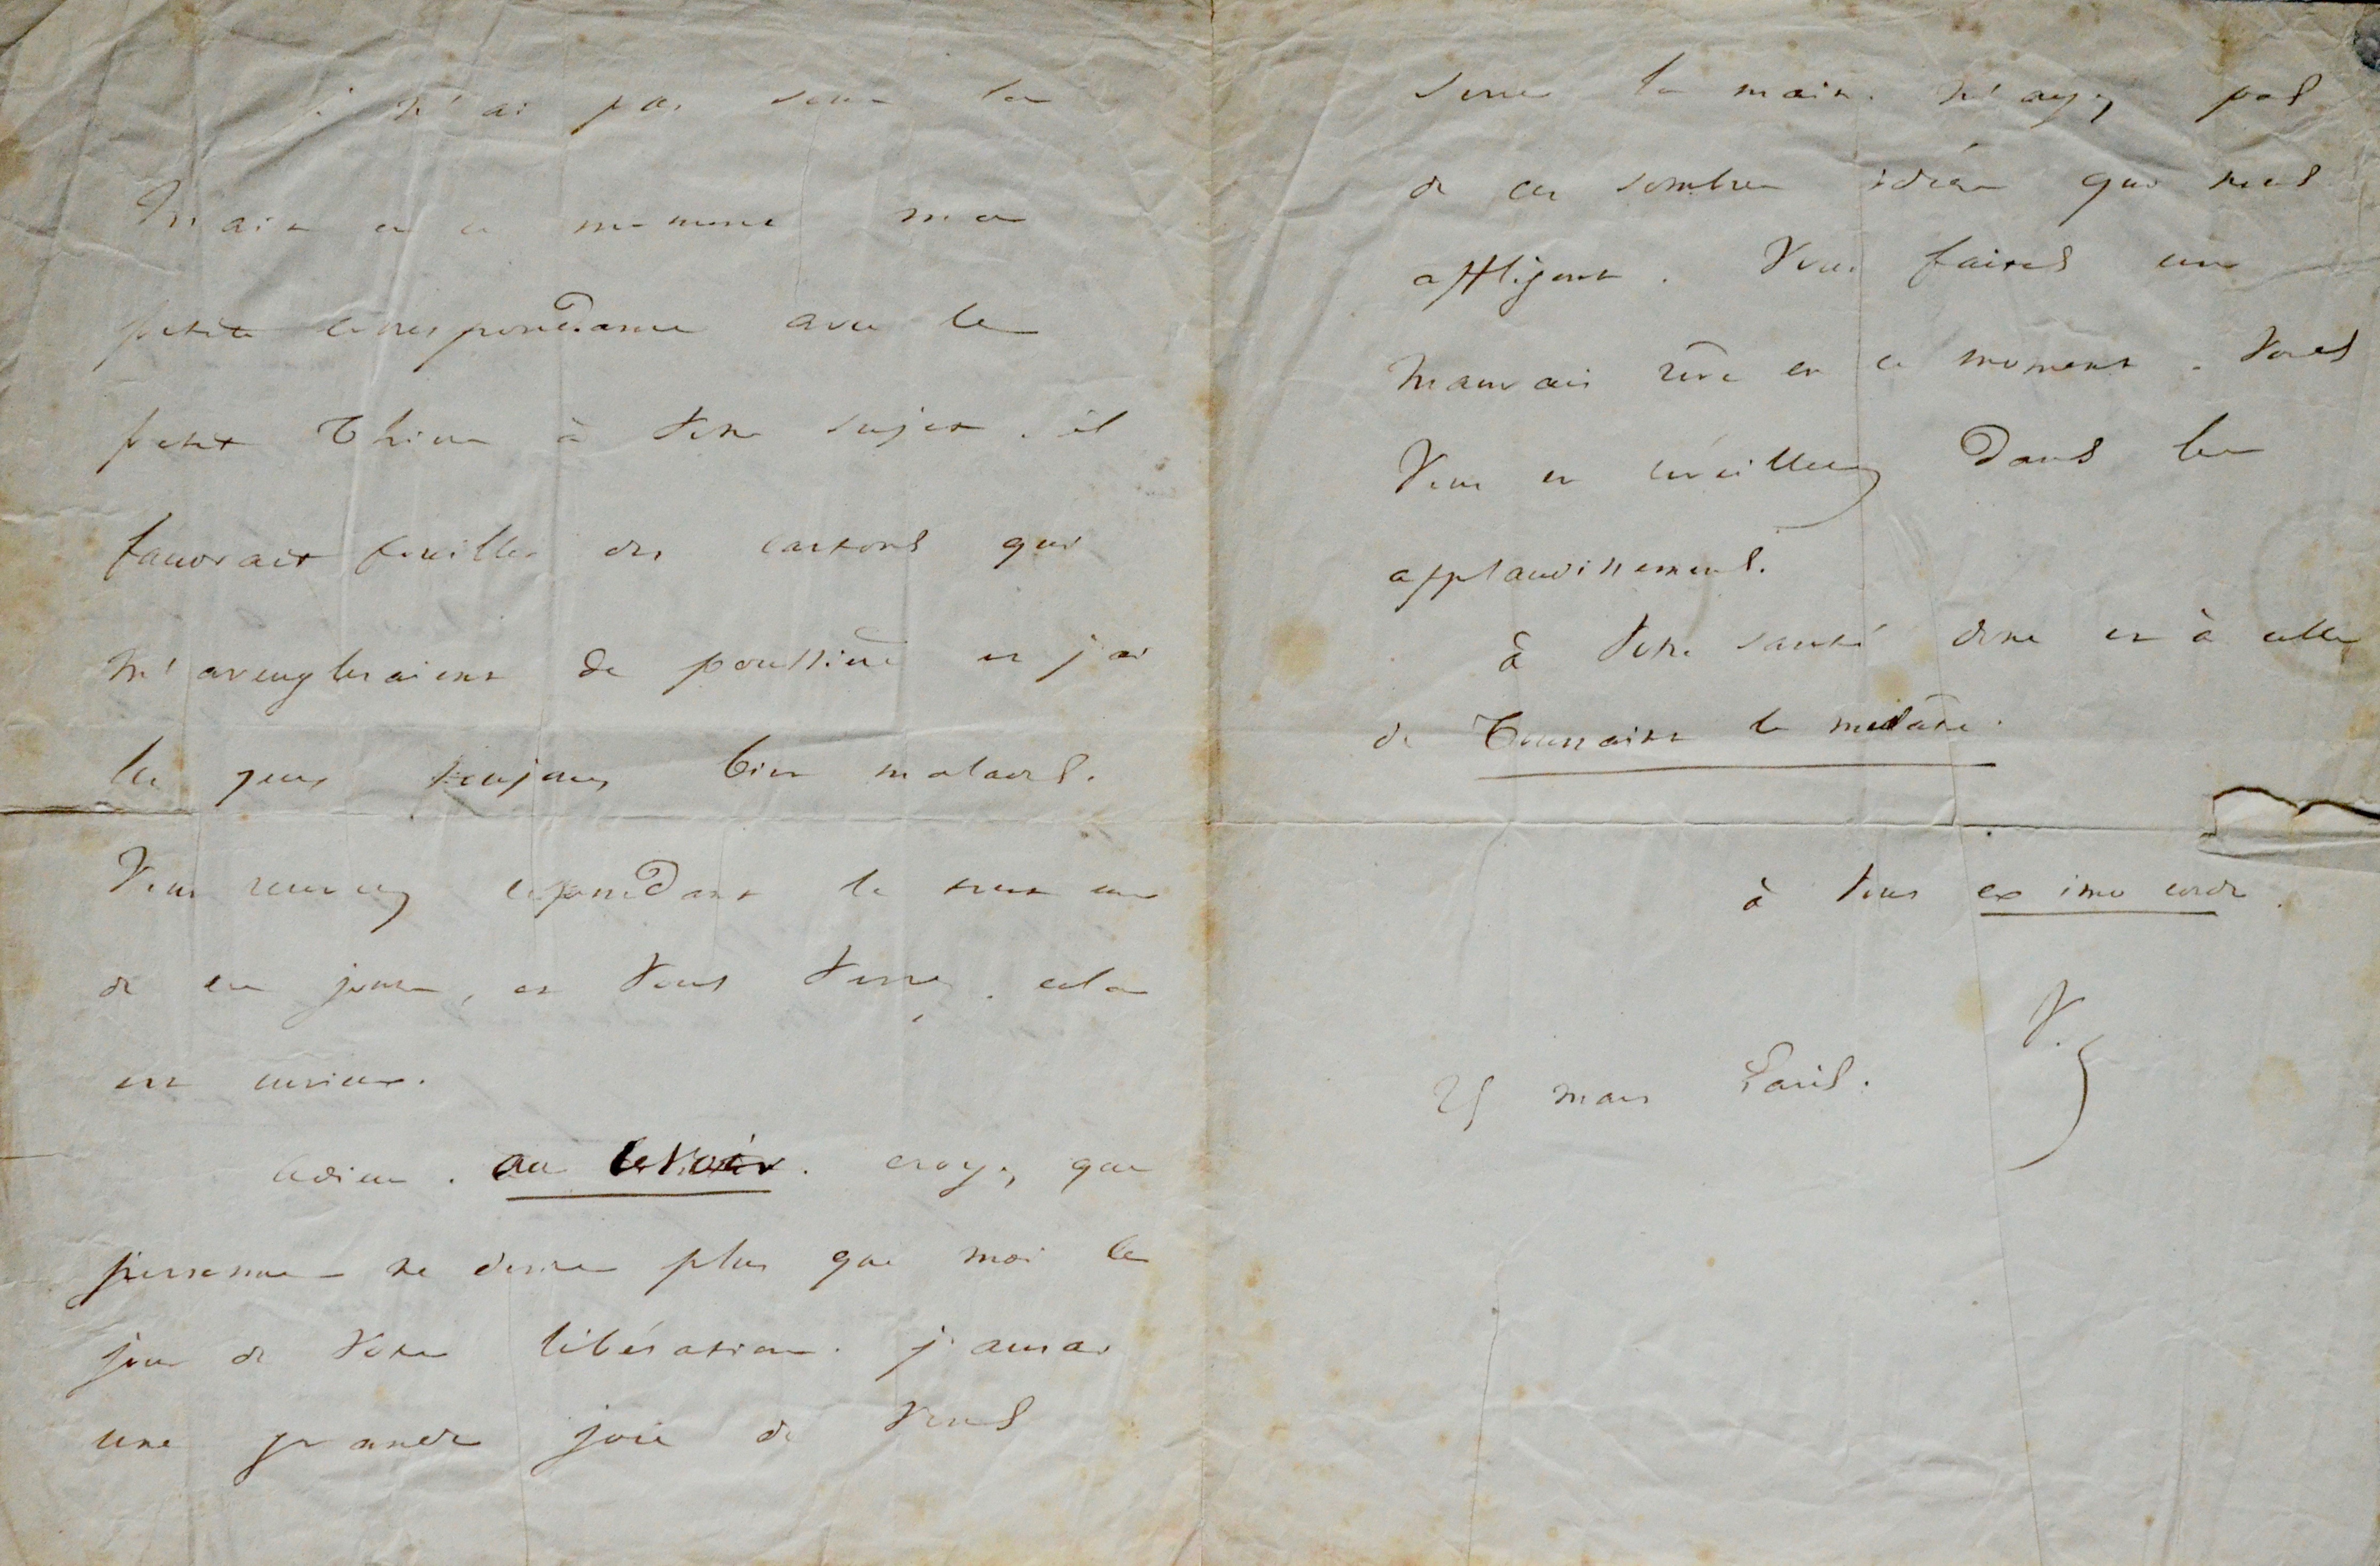 je n'ai pas sous la
main en ce moment ma
petite correspondance avec le
petit Thiers à votre sujet. il
faudrait fouiller des cartons qui
m'aveugleraient de poussière et j'ai
les yeux toujours bien malades.
Vous recevrez cependant le tout un
de ces jours, et vous verrez. cela
est curieux.
adieu. au revoir. croyez que
personne ne désire plus que moi le
jour de votre libération. j'aurai
une grande joie de vous
serrer la main. n'ayez pas
de ces sombres idées qui nous
affligent. Vous faites un
mauvais rêve en ce moment. Vous
vous en réveillerez dans les
applaudissements.
à votre santé donc et à celle
de Toussaint le mulâtre.
à vous ex imo corde.
V.
25 mars Paris.